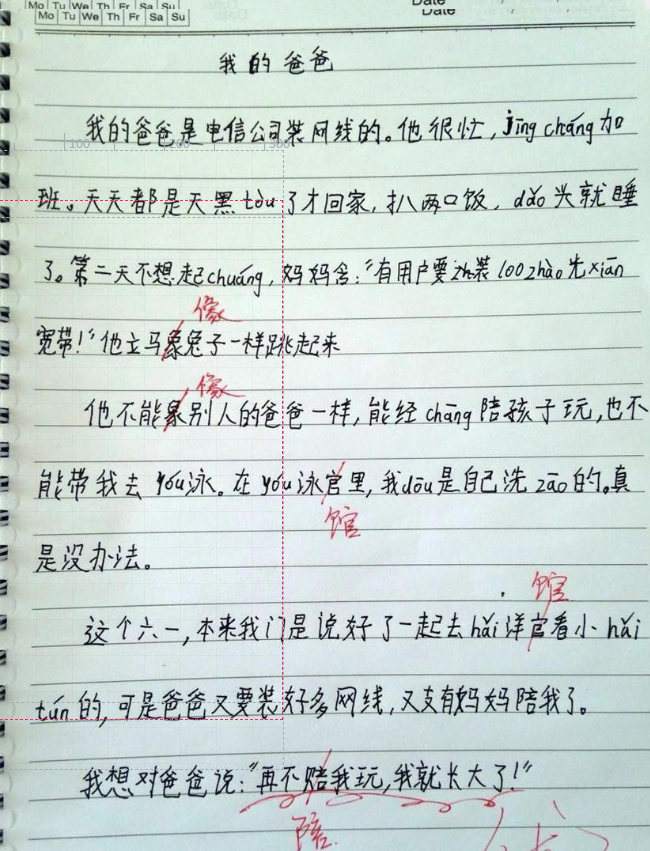 Mo Tu We Th Fr Sa Su Date
Mo Tu We Th Fr Sa Su Date
我的爸爸
我的爸爸是电信公司装网线的。他很忙，jīng cháng加
班。天天都是天黑tòu了才回家，扒两口饭，dǎo头就睡
了。第二天不想起chuáng，妈妈含：“有用户要zh装100zhào先xiān
像
宽带！”他立马象兔子一样跳起来
像
他不能象别人的爸爸一样，能经chāng陪孩子玩，也不
能带我去yóu泳。在yóu泳官里，我dōu是自己洗zǎo的。真
馆
是没办法。
馆
这个六一，本来我门是说好了一起去hǎi洋官看小hǎi
tún的，可是爸爸又要装好多网线，又支有妈妈陪我了。
我想对爸爸说：“再不赔我玩，我就长大了！”
陪